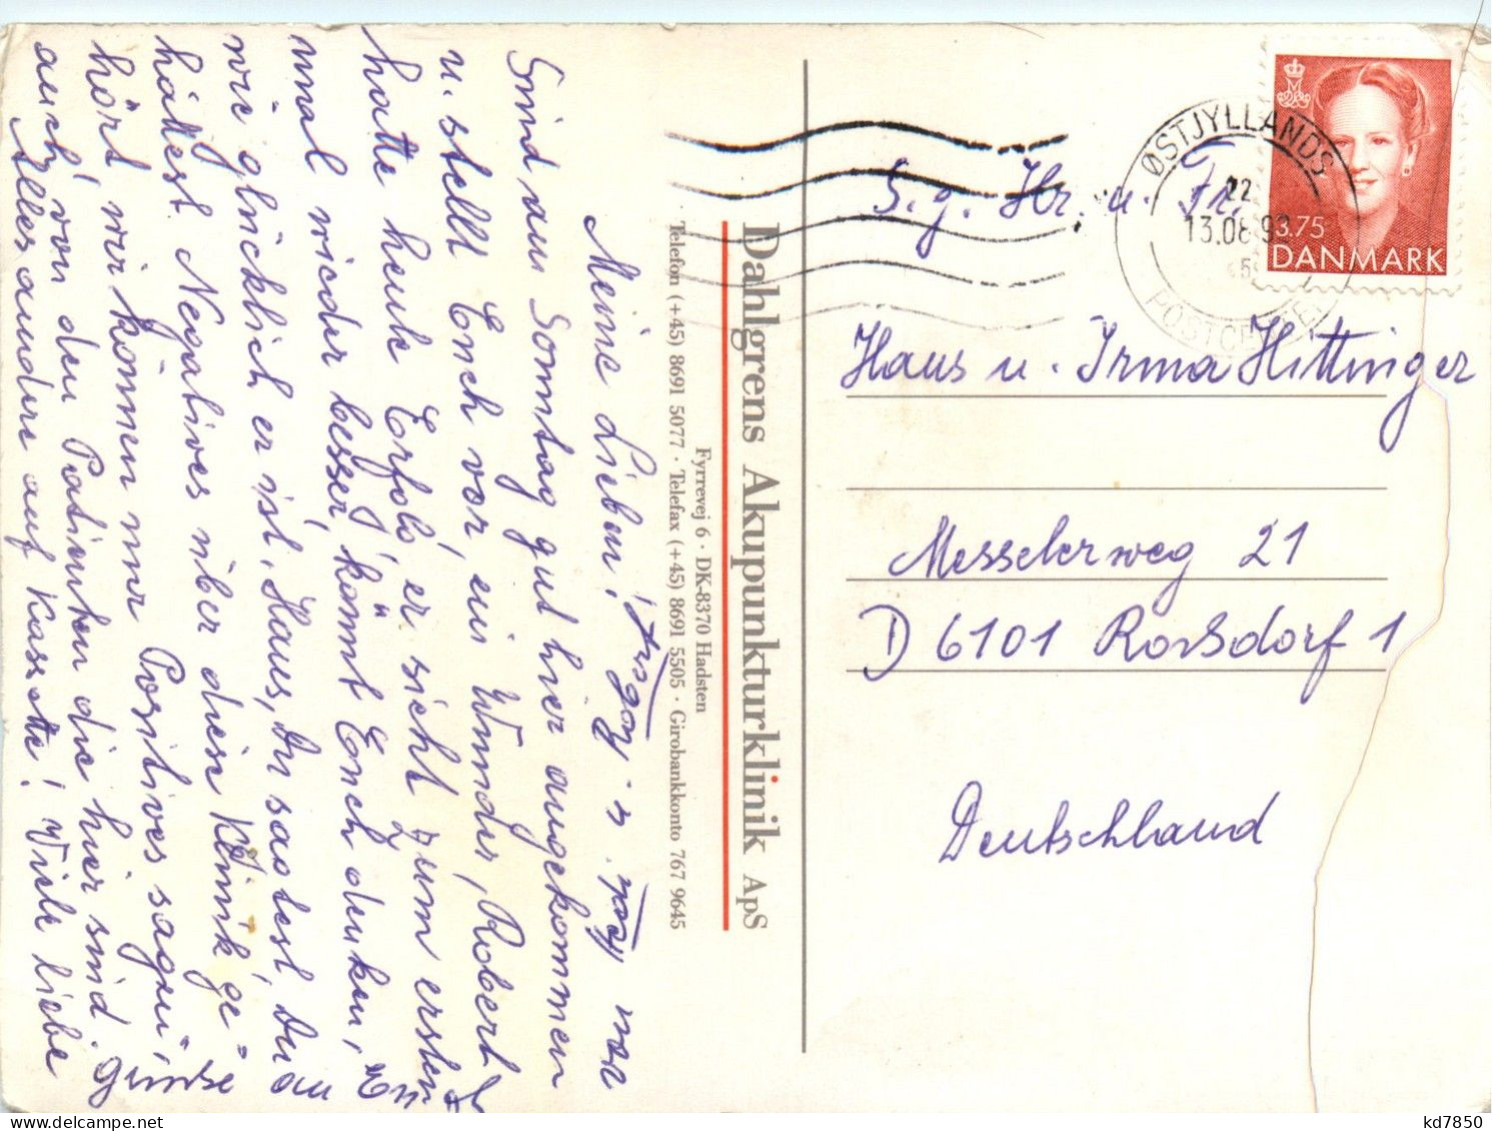 Meine Lieben!
Sind am Sonntag gut hier angekommen
u. stellt Euch vor, ein Wunder, Robert
hatte heute Erfolg, er sieht zum ersten
mal wieder besser, könnt Euch denken,
wie glücklich er ist. Hans, Du sagtest, Du
hättest Negatives über diese Klinik ge"
hört, wir können nur Positives sagen,
auch von den Patienten die hier sind.
Alles andere auf Kassette! Viele liebe
Dahlgrens Akupunkturklinik ApS
Fyrrevej 6 · DK-8370 Hadsten
Telefon (+45) 8691 5077 · Telefax (+45) 8691 5505 · Girobankkonto 767 9645
S. g. Hr. u. Fr.
Hans u. Irma Hittinger
Messelerweg 21
D 6101 Rossdorf 1
Deutschland
ØSTJYLLANDS
22
13.08.93
POSTCENTER
3.75
DANMARK
kd7850